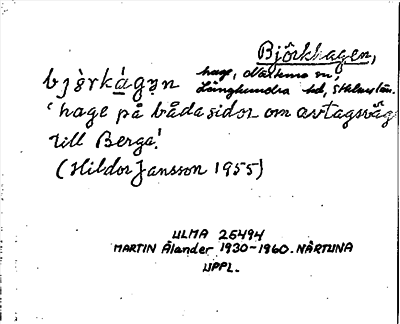 Björkhagen,
bjə̀rkágən hage, Närtuna sn,
Långhundra hd, Sthlms län.
'hage på båda sidor om avtagsväg
till Berga'.
(Hildor Jansson 1955)
ULMA 26494
MARTIN Ålander 1930-1960. NÄRTUNA
UPPL.